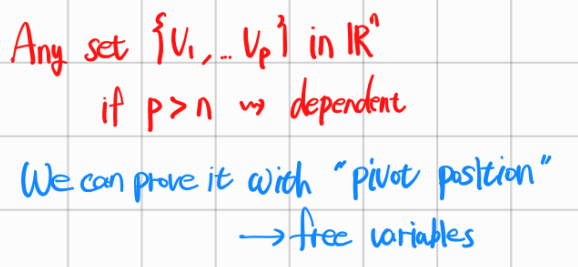 Any set {v₁, ... vₚ} in ℝⁿ
if p > n ⇝ dependent
We can prove it with "pivot position"
→ free variables